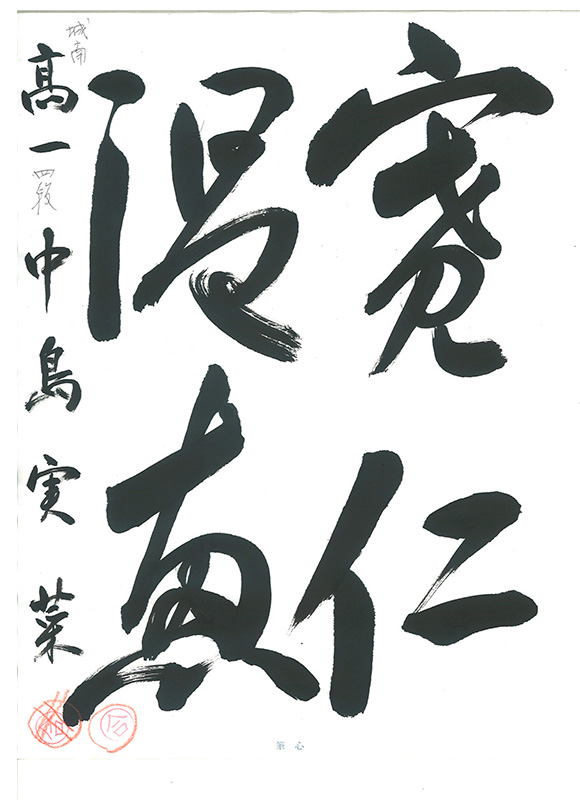 寛仁
温恵
城南
高一 四段 中島実菜
筆心